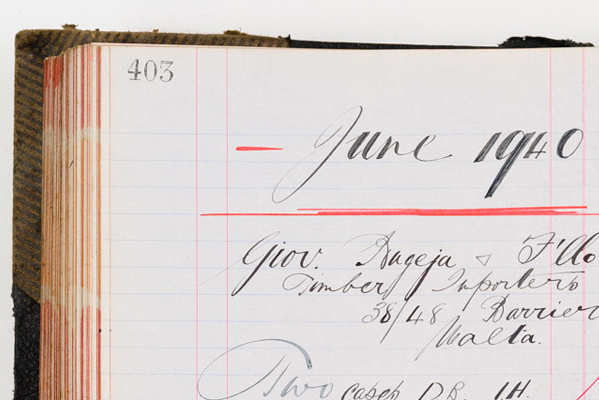 403
June 1940
Giov. Aageja & F'llo
Timber Importers
38/48 Barrier
Malta.
Two cases DB. 1H.